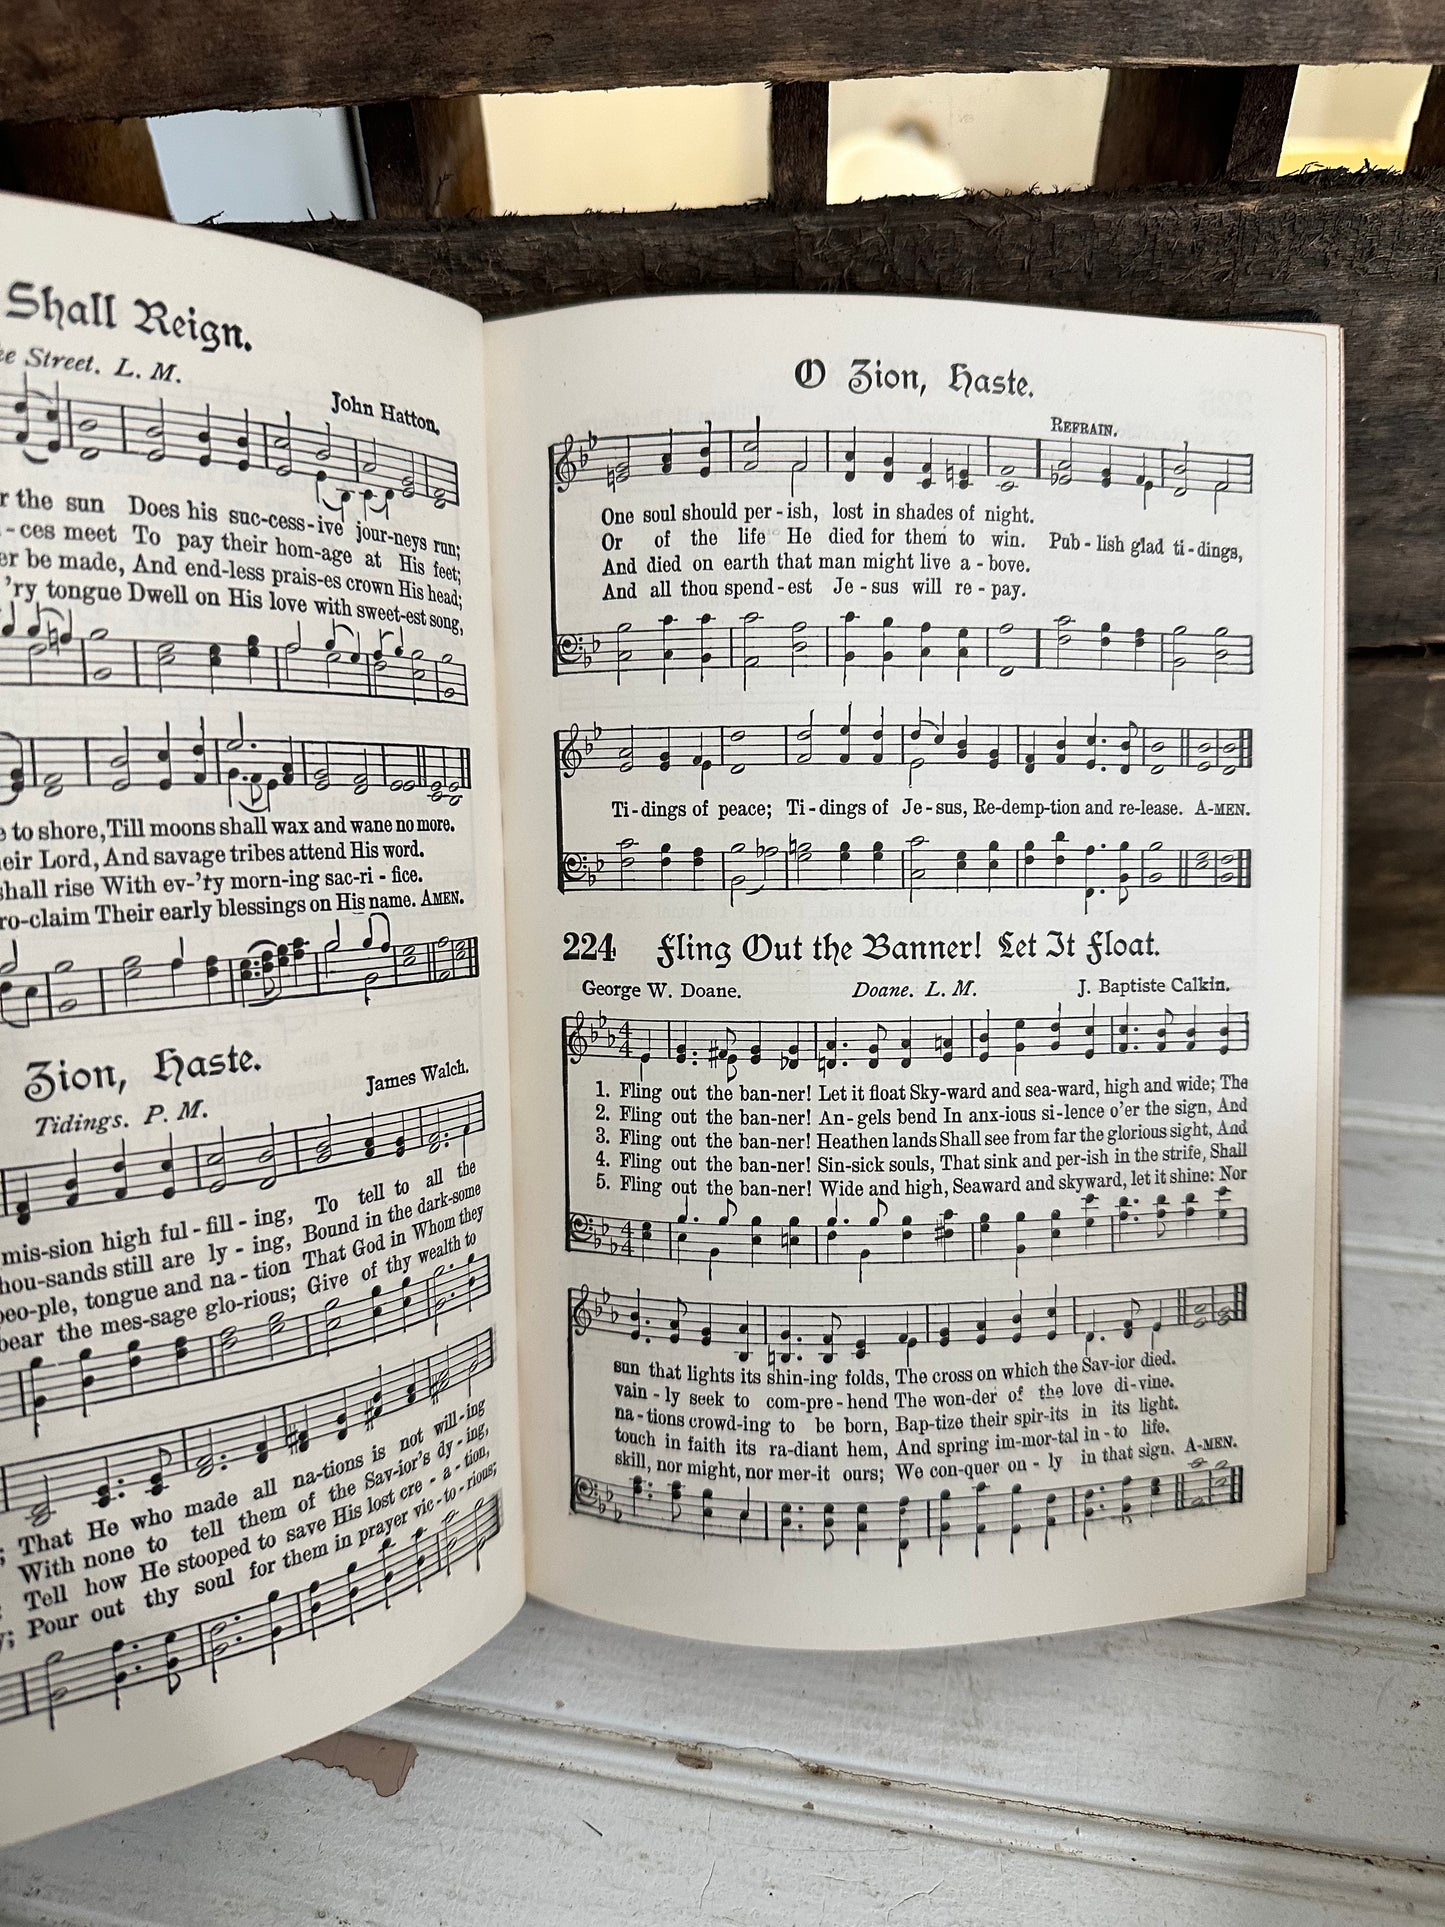 Shall Reign.
Street. L. M.
John Hatton.
the sun Does his suc-cess-ive jour-neys run;
-ces meet To pay their hom-age at His feet;
be made, And end-less prais-es crown His head;
'ry tongue Dwell on His love with sweet-est song,
to shore, Till moons shall wax and wane no more.
Lord, And savage tribes attend His word.
shall rise With ev-'ry morn-ing sac-ri-fice.
claim Their early blessings on His name. AMEN.
Zion, Haste.
Tidings. P. M.
James Walch.
mis-sion high ful-fill-ing, To tell to all the
still are ly-ing, Bound in the dark-some
tongue and na-tion That God in Whom they
bear the mes-sage glo-rious; Give of thy wealth to
; That He who made all na-tions is not will-ing
With none to tell them of the Sav-ior's dy-ing,
Tell how He stooped to save His lost cre-a-tion,
; Pour out thy soul for them in prayer vic-to-rious;
O Zion, Haste.
REFRAIN.
One soul should per-ish, lost in shades of night.
Or of the life He died for them to win. Pub-lish glad ti-dings,
And died on earth that man might live a-bove.
And all thou spend-est Je-sus will re-pay.
Ti-dings of peace; Ti-dings of Je-sus, Re-demp-tion and re-lease. A-MEN.
224 Fling Out the Banner! Let It Float.
George W. Doane. Doane. L. M. J. Baptiste Calkin.
4
4
1. Fling out the ban-ner! Let it float Sky-ward and sea-ward, high and wide; The
2. Fling out the ban-ner! An-gels bend In anx-ious si-lence o'er the sign, And
3. Fling out the ban-ner! Heathen lands Shall see from far the glorious sight, And
4. Fling out the ban-ner! Sin-sick souls, That sink and per-ish in the strife, Shall
5. Fling out the ban-ner! Wide and high, Seaward and skyward, let it shine: Nor
4
4
sun that lights its shin-ing folds, The cross on which the Sav-ior died.
vain-ly seek to com-pre-hend The won-der of the love di-vine.
na-tions crowd-ing to be born, Bap-tize their spir-its in its light.
touch in faith its ra-diant hem, And spring im-mor-tal in-to life.
skill, nor might, nor mer-it ours; We con-quer on-ly in that sign. A-MEN.